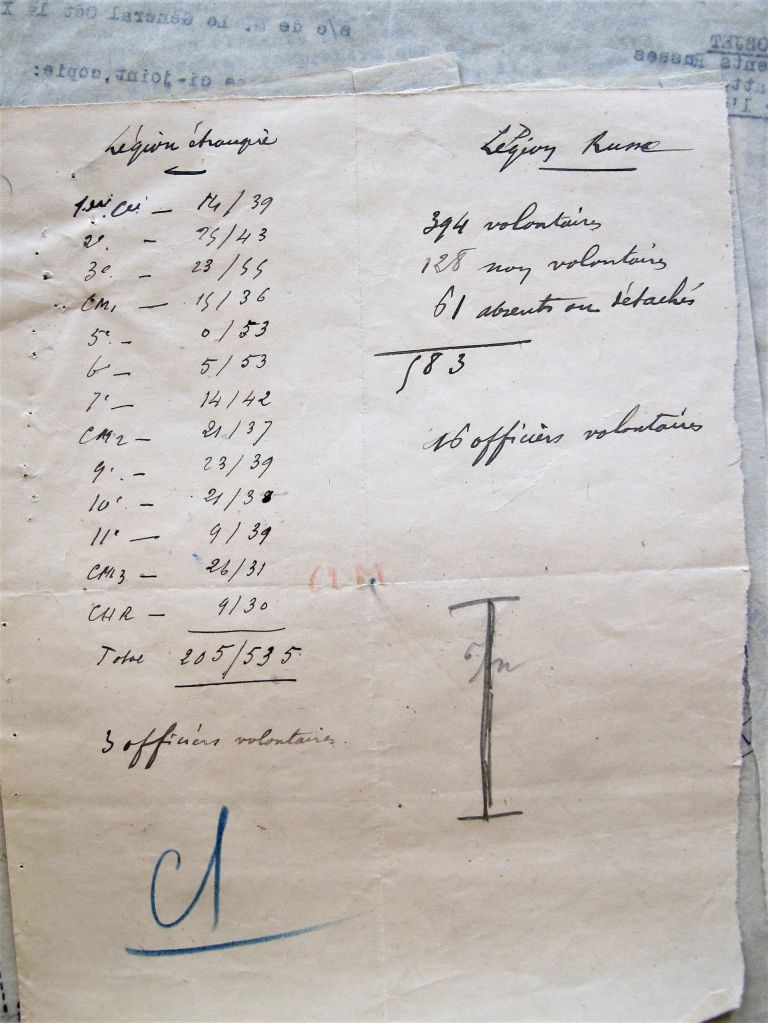 s/c de M. le Général Cdt la
OBJET
Russes
ci-joint, copie:
Légion étrangère
Légion Russe
1ère Cie — 14/39
2e — 25/43
3e — 23/55
CM1 — 15/36
5e — 0/53
6e — 5/53
7e — 14/42
CM2 — 21/37
9e — 23/39
10e — 21/38
11e — 9/39
CM3 — 26/31
CHR — 9/30
Total 205/535
3 officiers volontaires.
394 volontaires
128 non volontaires
61 absents ou détachés
583
16 officiers volontaires
Cl